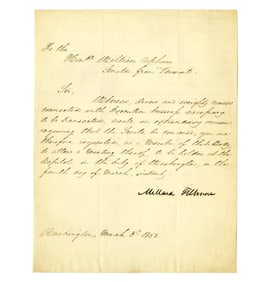 To the
Honble William Upham
Senator from Vermont.
Sir,
Whereas divers and weighty causes
connected with Executive business necessary
to be transacted, create an extraordinary occasion
requiring that the Senate be convened, you are
therefore requested, as a Member of that Body,
to attend a meeting thereof to be holden at the
Capitol, in the City of Washington, on the
fourth day of March, instant.
Millard Fillmore
Washington, March 3d 1851.